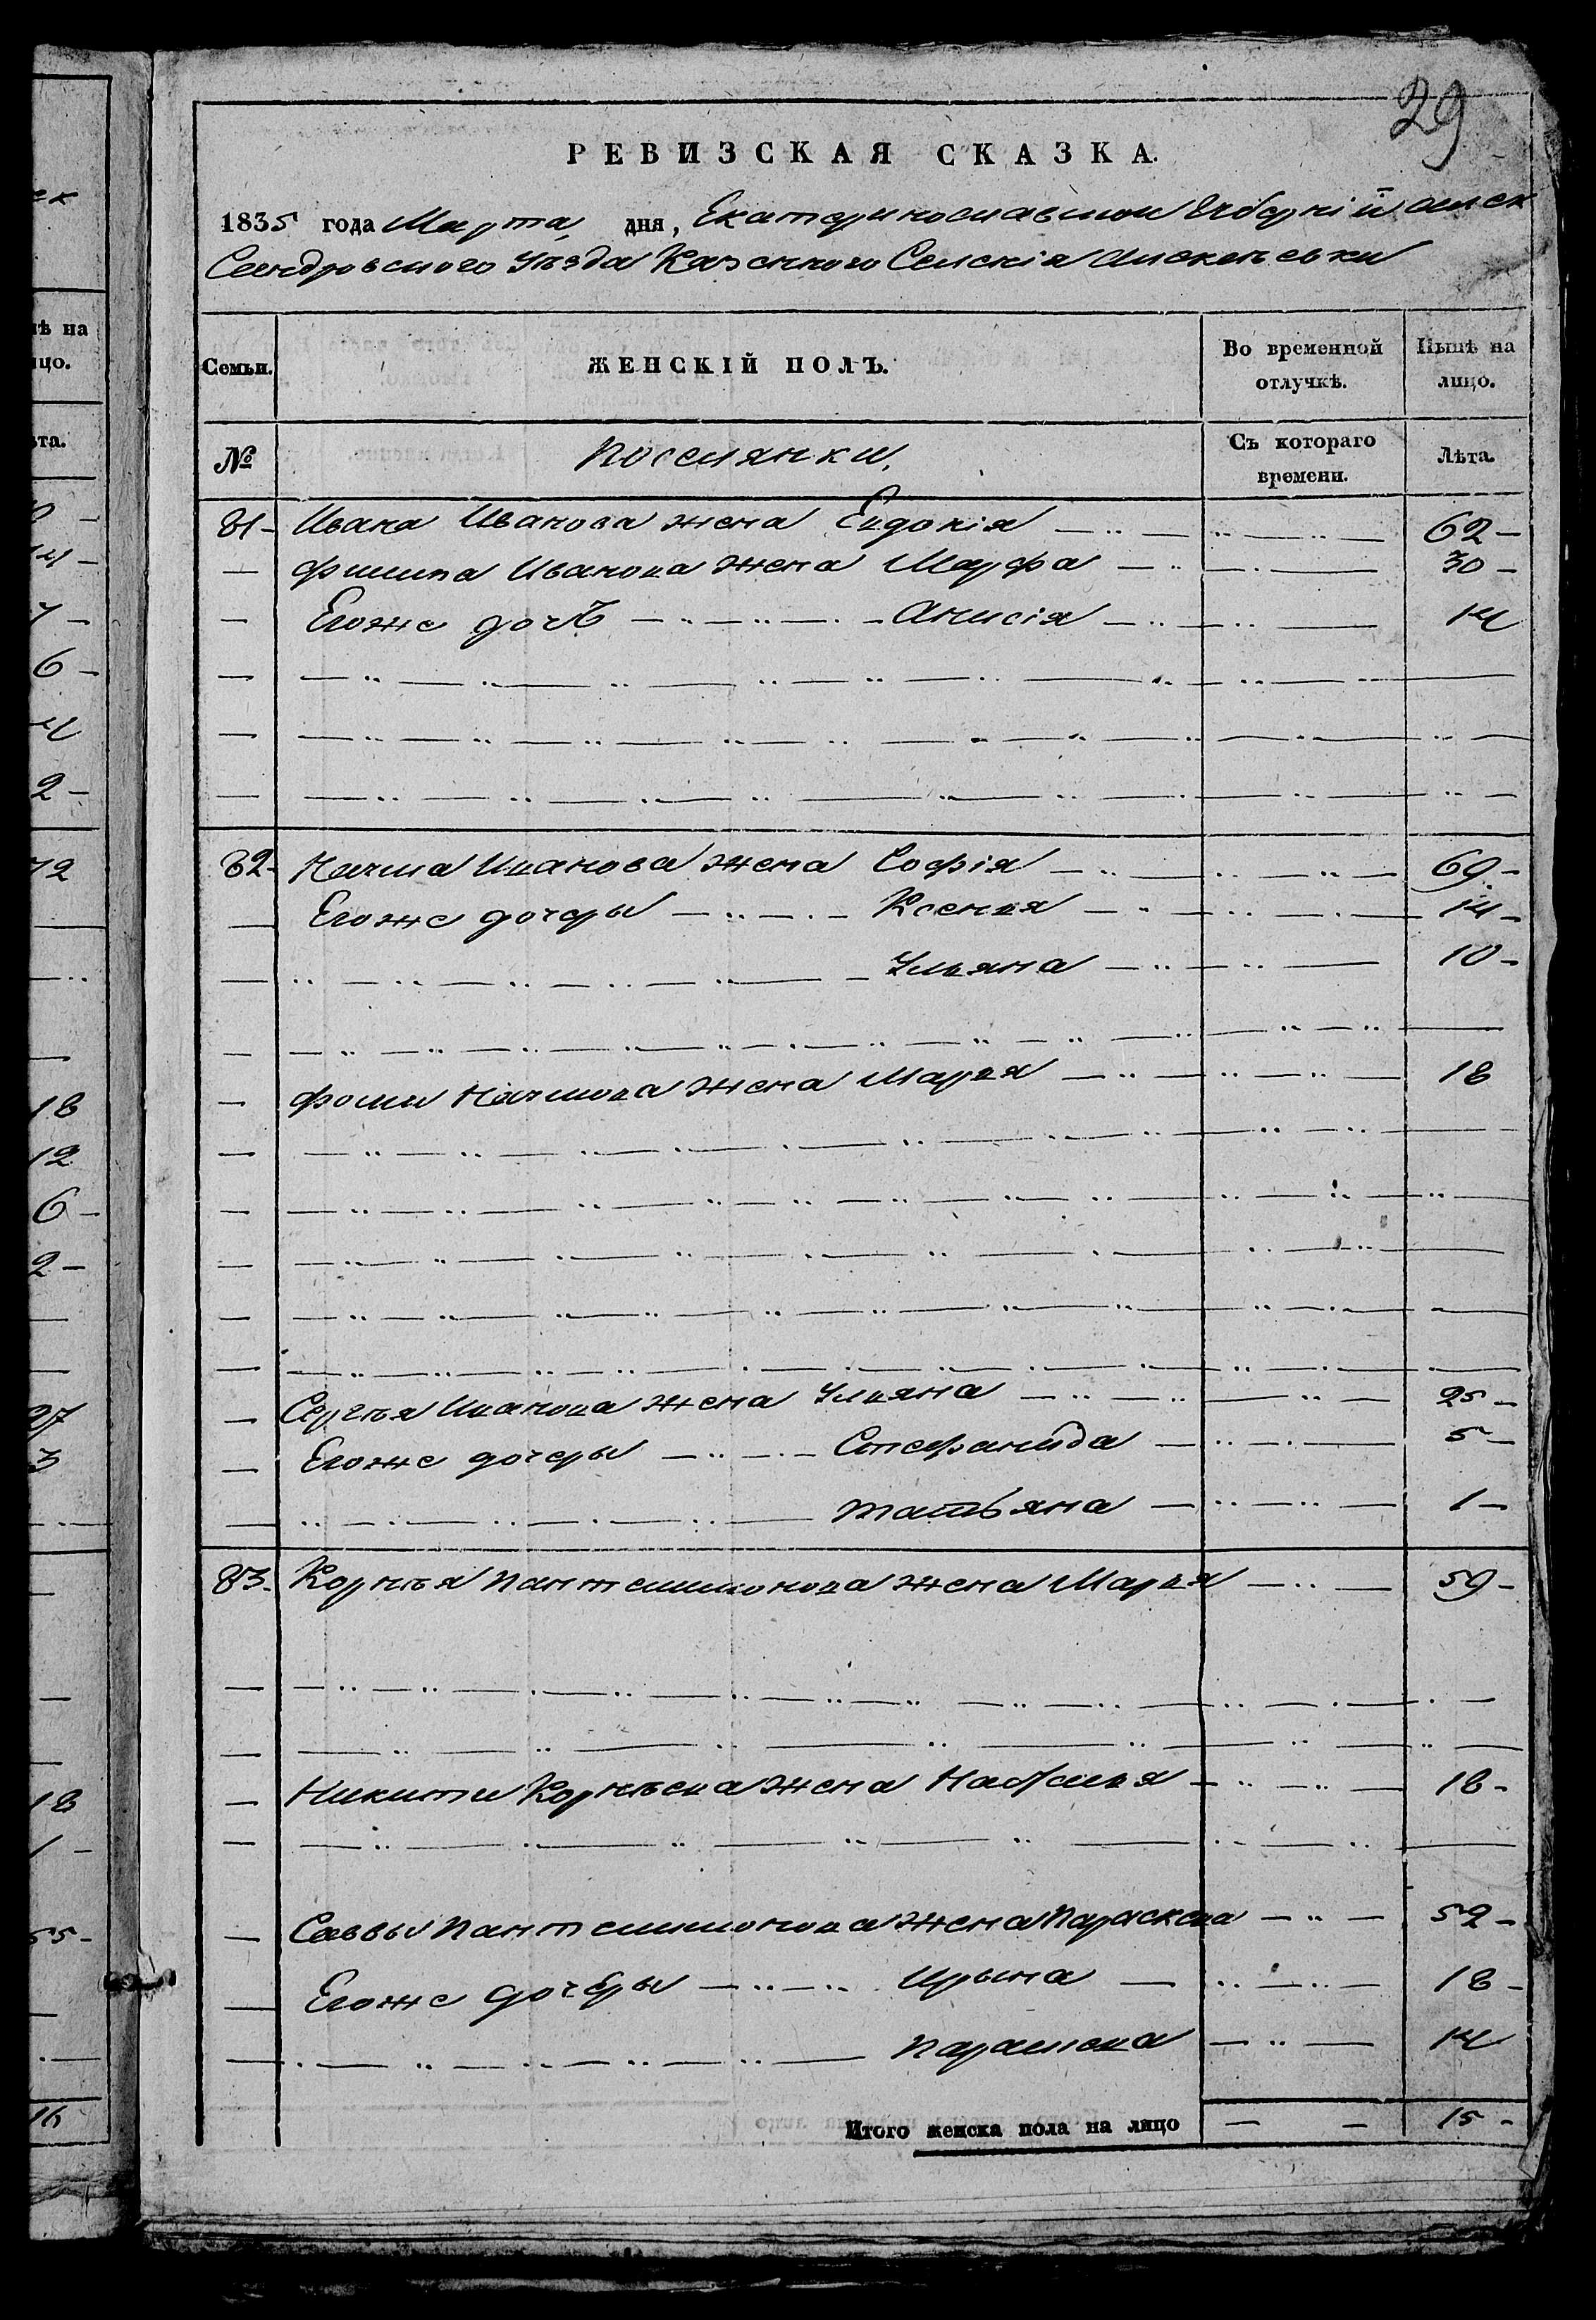 29
РЕВИЗСКАЯ СКАЗКА.
1835 года Марта дня, Екатеринославской Губерніи Алек
Сандровского Уѣзда Казенного Селенія Алексѣевки
Семьи. ЖЕНСКІЙ ПОЛЪ. Во временной отлучкѣ. Нынѣ на лицо.
№ Поселянки. Съ котораго времени. Лѣта.
81 - Ивана Иванова жена Евдокія 62 -
Филипа Иванова жена Марфа 30 -
Егоже дочЪ Анисія 14
82 - Наума Иванова жена Софія 69 -
Егоже дочеры Ксенія 14 -
Ульяна 10 -
Фомы Наумова жена Марья 18
Сергѣя Иванова жена Ульяна 25 -
Егоже дочеры Стефанида 5 -
Татьяна 1 -
83 - Корнѣя Пантелимонова жена Марья 59 -
Никиты Корнѣева жена Наталья 18 -
Саввы Пантелимонова жена Параскева 52 -
Егоже дочеры Ирына 18 -
Параскева 14
Итого женска пола на лицо 15 -
нѣ на
лицо.
ѣта.
14 -
7 -
6 -
4
2 -
72
18
12
6 -
2 -
27
3
18
1 -
55 -
16